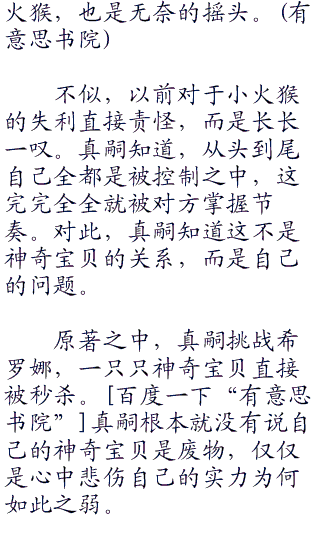 火猴，也是无奈的摇头。(有
意思书院)
不似，以前对于小火猴
的失利直接责怪，而是长长
一叹。真嗣知道，从头到尾
自己全都是被控制之中，这
完完全全就被对方掌握节
奏。对此，真嗣知道这不是
神奇宝贝的关系，而是自己
的问题。
原著之中，真嗣挑战希
罗娜，一只只神奇宝贝直接
被秒杀。[百度一下“有意思
书院”]真嗣根本就没有说自
己的神奇宝贝是废物，仅仅
是心中悲伤自己的实力为何
如此之弱。